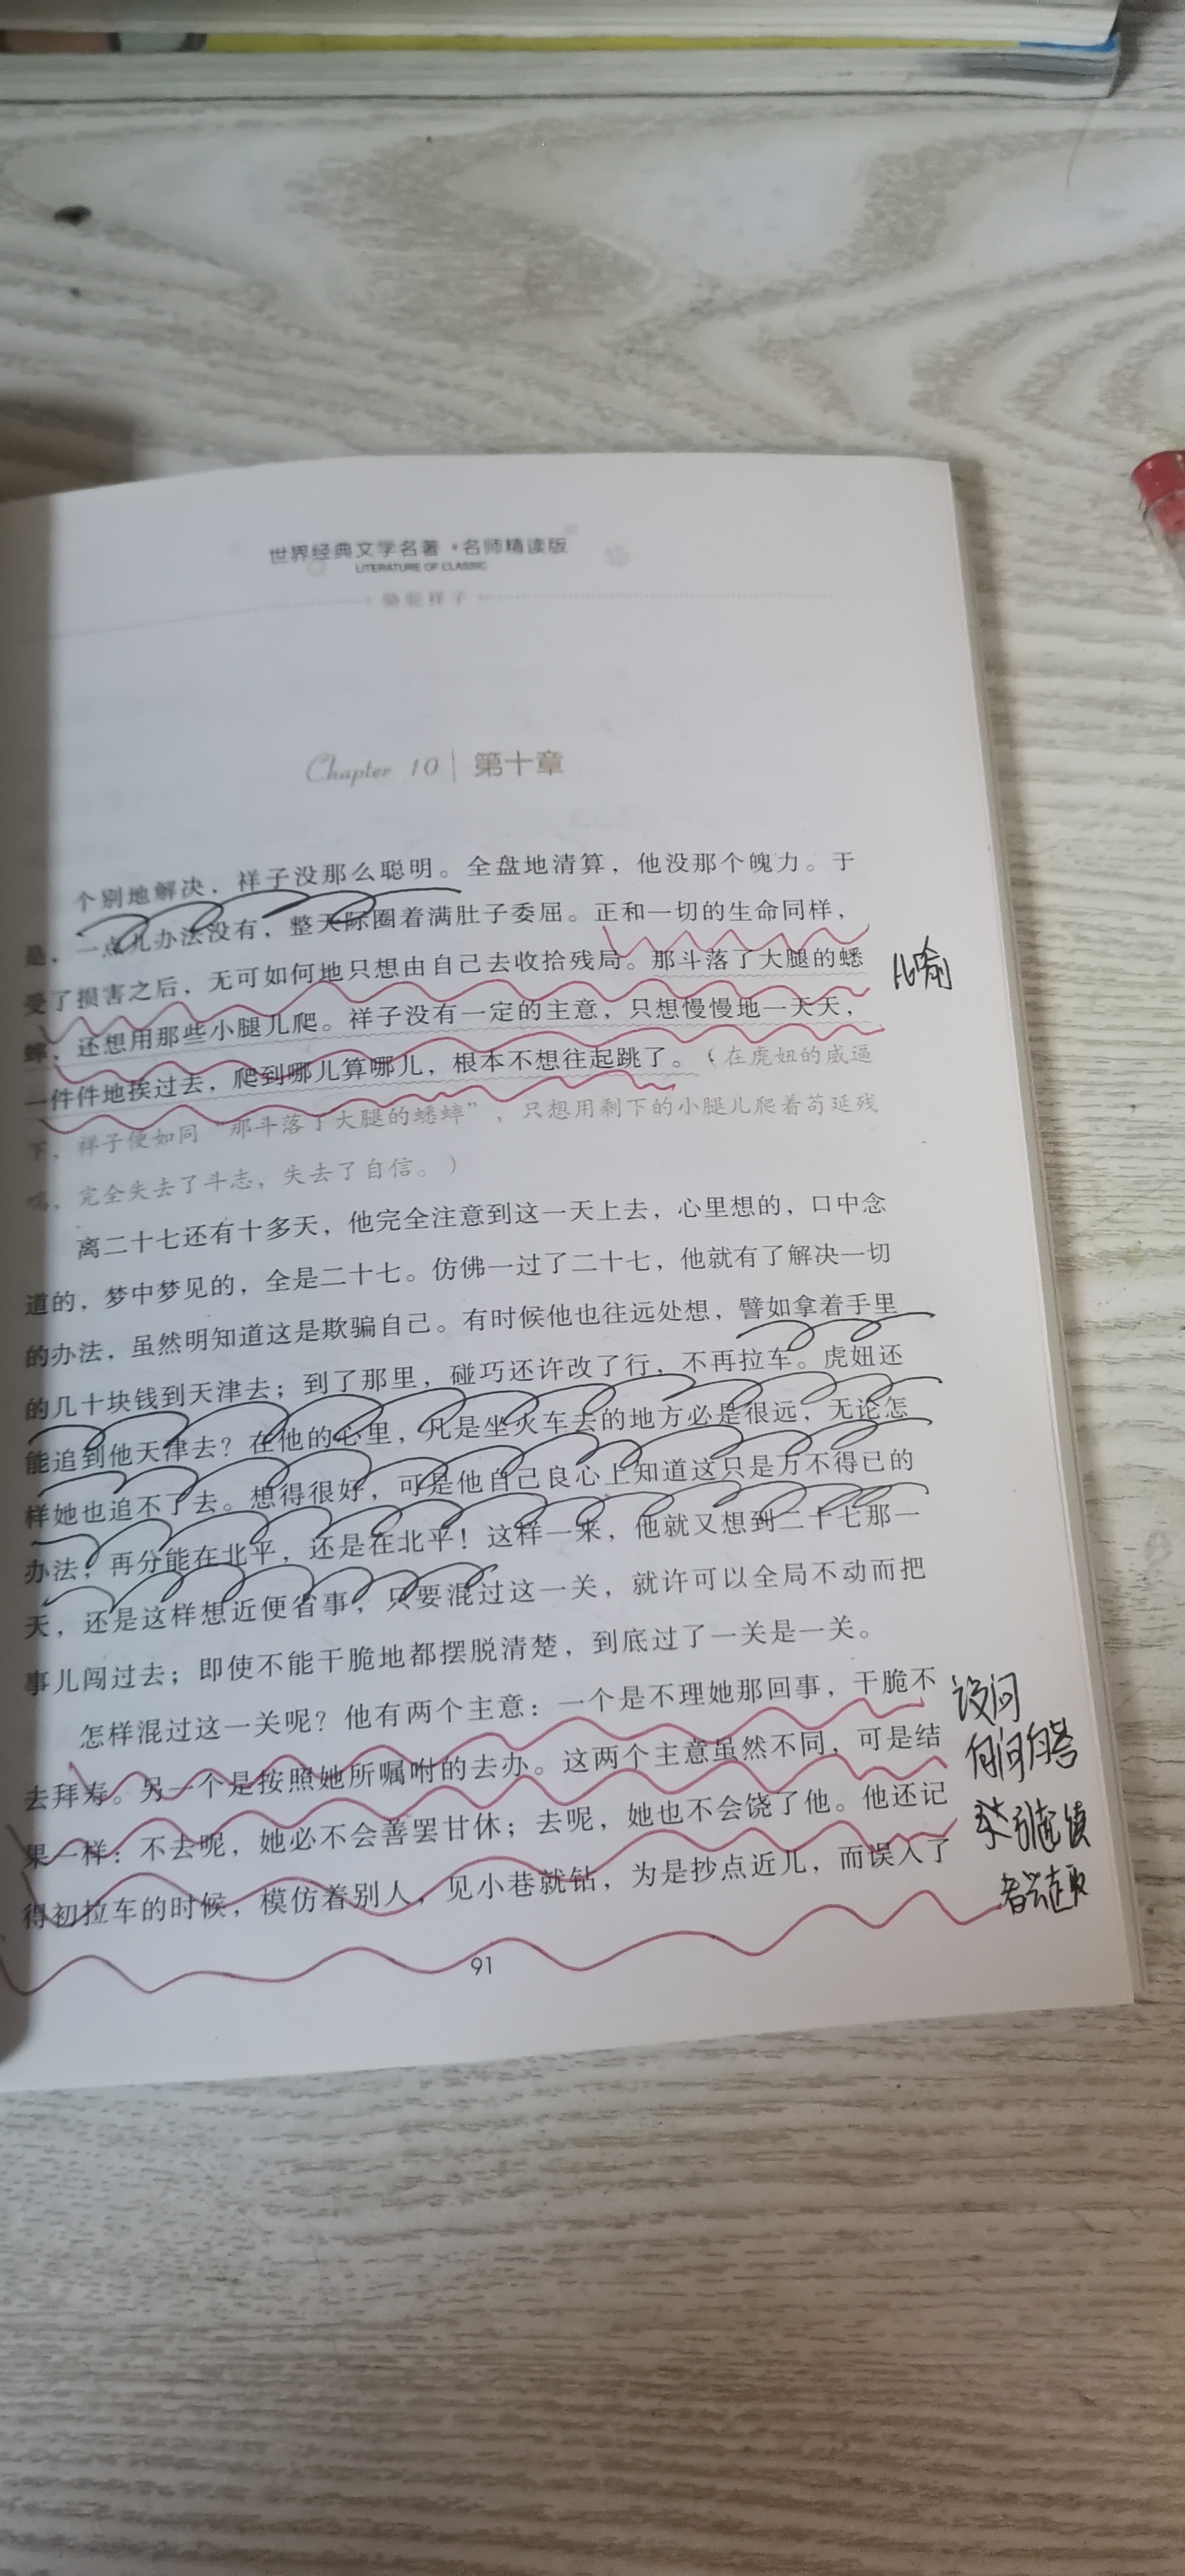 世界经典文学名著·名师精读版
LITERATURE OF CLASSIC
骆驼祥子
Chapter 10 | 第十章
个别地解决，祥子没那么聪明。全盘地清算，他没那个魄力。于
是，一点儿办法没有，整天际圈着满肚子委屈。正和一切的生命同样，
受了损害之后，无可如何地只想由自己去收拾残局。那斗落了大腿的蟋
蟀，还想用那些小腿儿爬。祥子没有一定的主意，只想慢慢地一天天，
一件件地挨过去，爬到哪儿算哪儿，根本不想往起跳了。（在虎妞的威逼
下，祥子便如同“那斗落了大腿的蟋蟀”，只想用剩下的小腿儿爬着苟延残
喘，完全失去了斗志，失去了自信。）
比喻
离二十七还有十多天，他完全注意到这一天上去，心里想的，口中念
道的，梦中梦见的，全是二十七。仿佛一过了二十七，他就有了解决一切
的办法，虽然明知道这是欺骗自己。有时候他也往远处想，譬如拿着手里
的几十块钱到天津去；到了那里，碰巧还许改了行，不再拉车。虎妞还
能追到他天津去？在他的心里，凡是坐火车去的地方必是很远，无论怎
样她也追不了去。想得很好，可是他自己良心上知道这只是万不得已的
办法，再分能在北平，还是在北平！这样一来，他就又想到二十七那一
天，还是这样想近便省事，只要混过这一关，就许可以全局不动而把
事儿闯过去；即使不能干脆地都摆脱清楚，到底过了一关是一关。
怎样混过这一关呢？他有两个主意：一个是不理她那回事，干脆不
去拜寿。另一个是按照她所嘱咐的去办。这两个主意虽然不同，可是结
果一样：不去呢，她必不会善罢甘休；去呢，她也不会饶了他。他还记
得初拉车的时候，模仿着别人，见小巷就钻，为是抄点近儿，而误入了
设问
自问自答
引起读
者兴趣
91